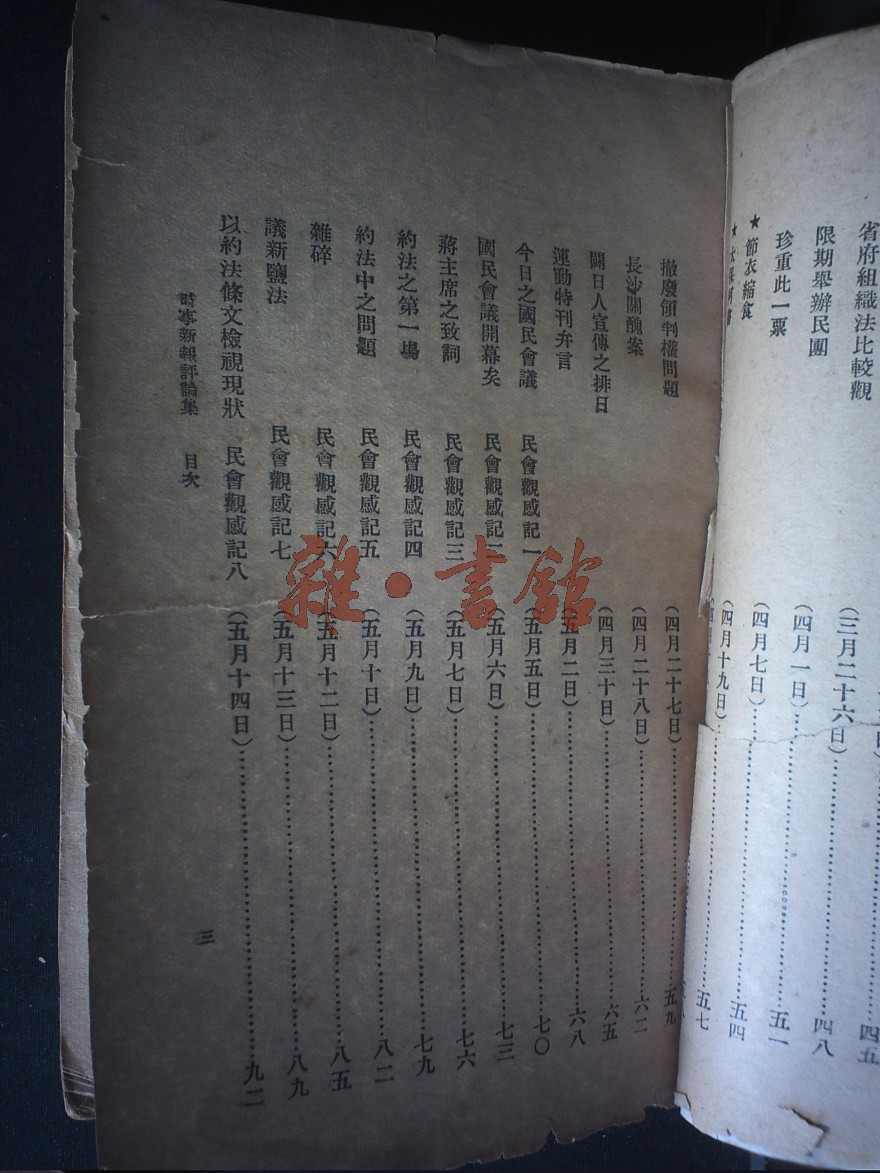 省府組織法比較觀 (三月二十六日)……四五
限期舉辦民團 (四月一日)……四八
珍重此一票 (四月七日)……五一
★節衣縮食 (四月十九日)……五四
五七
撤廢領判權問題 (四月二十七日)……五九
長沙關醜案 (四月二十八日)……六二
闢日人宣傳之排日 (四月三十日)……六五
運動特刊弁言 (五月二日)……六八
今日之國民會議 民會觀感記一 (五月五日)……七〇
國民會議開幕矣 民會觀感記二 (五月六日)……七三
蔣主席之致詞 民會觀感記三 (五月七日)……七六
約法之第一場 民會觀感記四 (五月九日)……七九
約法中之問題 民會觀感記五 (五月十日)……八二
雜碎 民會觀感記六 (五月十二日)……八五
議新鹽法 民會觀感記七 (五月十三日)……八九
以約法條文檢視現狀 民會觀感記八 (五月十四日)……九二
時事新報評論集 目次 三
雜·書館